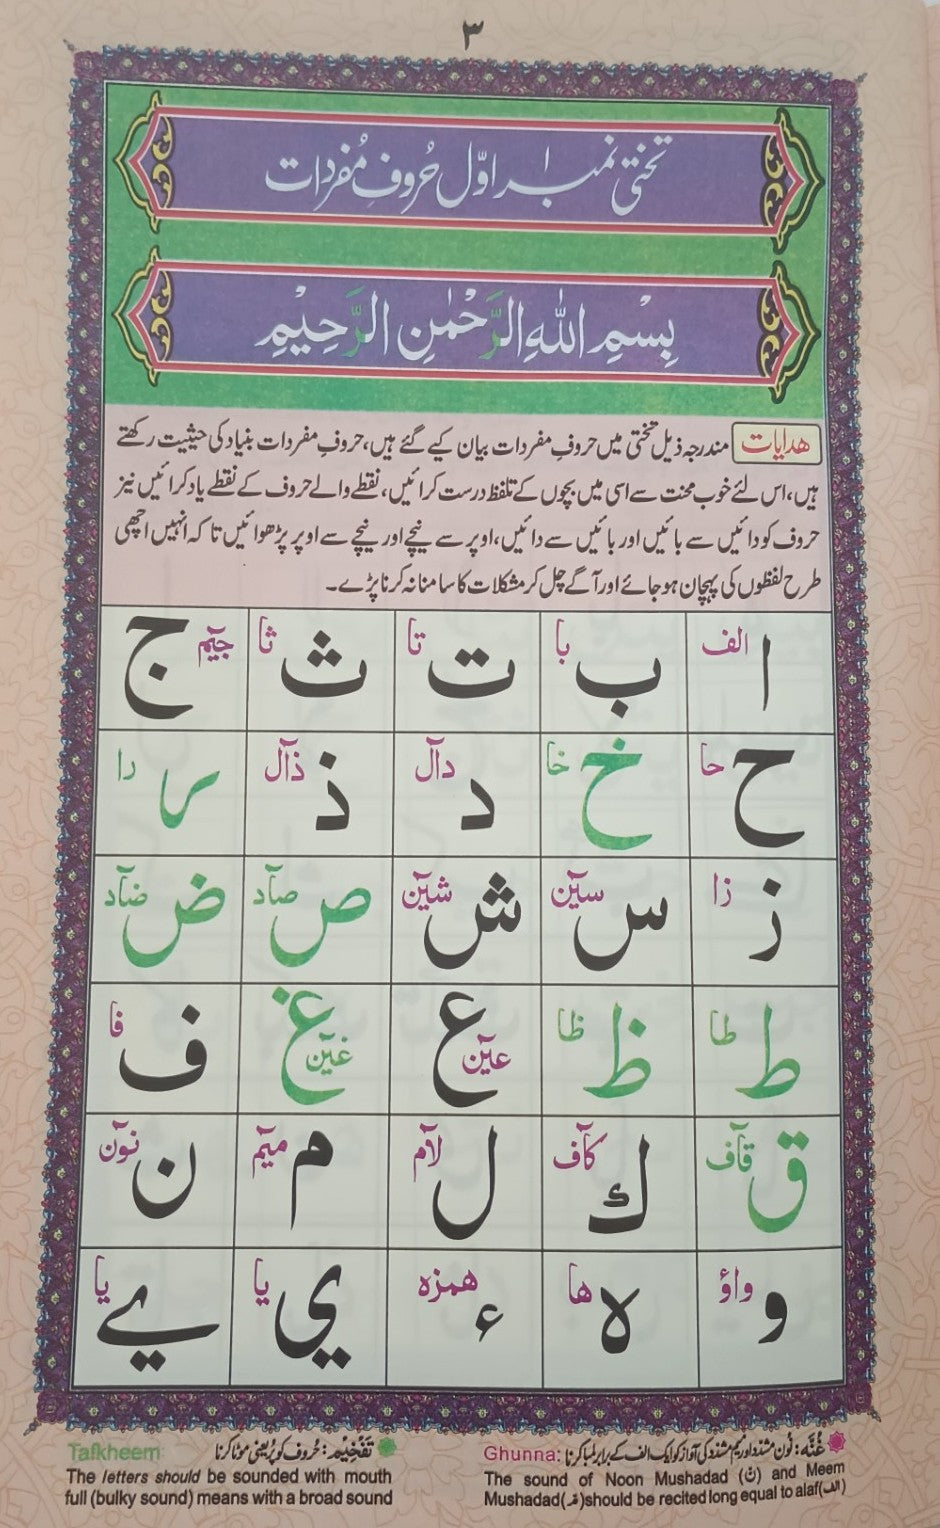 ۳
تختی نمبر ۱ اوّل حُروفِ مُفردات
بِسْمِ اللّٰهِ الرَّحْمٰنِ الرَّحِيْمِ
هدایات مندرجہ ذیل تختی میں حروفِ مفردات بیان کیے گئے ہیں، حروفِ مفردات بنیاد کی حیثیت رکھتے
ہیں، اس لئے خوب محنت سے اسی میں بچوں کے تلفظ درست کرائیں، نقطے والے حروف کے نقطے یاد کرائیں نیز
حروف کو دائیں سے بائیں اور بائیں سے دائیں، اوپر سے نیچے اور نیچے سے اوپر پڑھوائیں تاکہ انہیں اچھی
طرح لفظوں کی پہچان ہو جائے اور آگے چل کر مشکلات کا سامنا نہ کرنا پڑے۔
ا الف ب با ت تا ث ثا ج جیٓم
ح حا خ خا د دآل ذ ذآل ر را
ز زا س سیٓن ش شیٓن ص صآد ض ضآد
ط طا ظ ظا ع عیٓن غ غیٓن ف فا
ق قآف ك كآف ل لآم م میٓم ن نوٓن
و واؤ ه ها ء همزه ي یا ے یا
غُنَّه: نُون مشدد اور میم مشدد کی آواز کو ایک الف کے برابر لمبا کرنا Ghunna:
The sound of Noon Mushadad (نّ) and Meem
Mushadad(مّ)should be recited long equal to alaf(الف)
تَفْخِیْم: حُروف کو پُر یعنی موٹا کرنا Tafkheem
The letters should be sounded with mouth
full (bulky sound) means with a broad sound